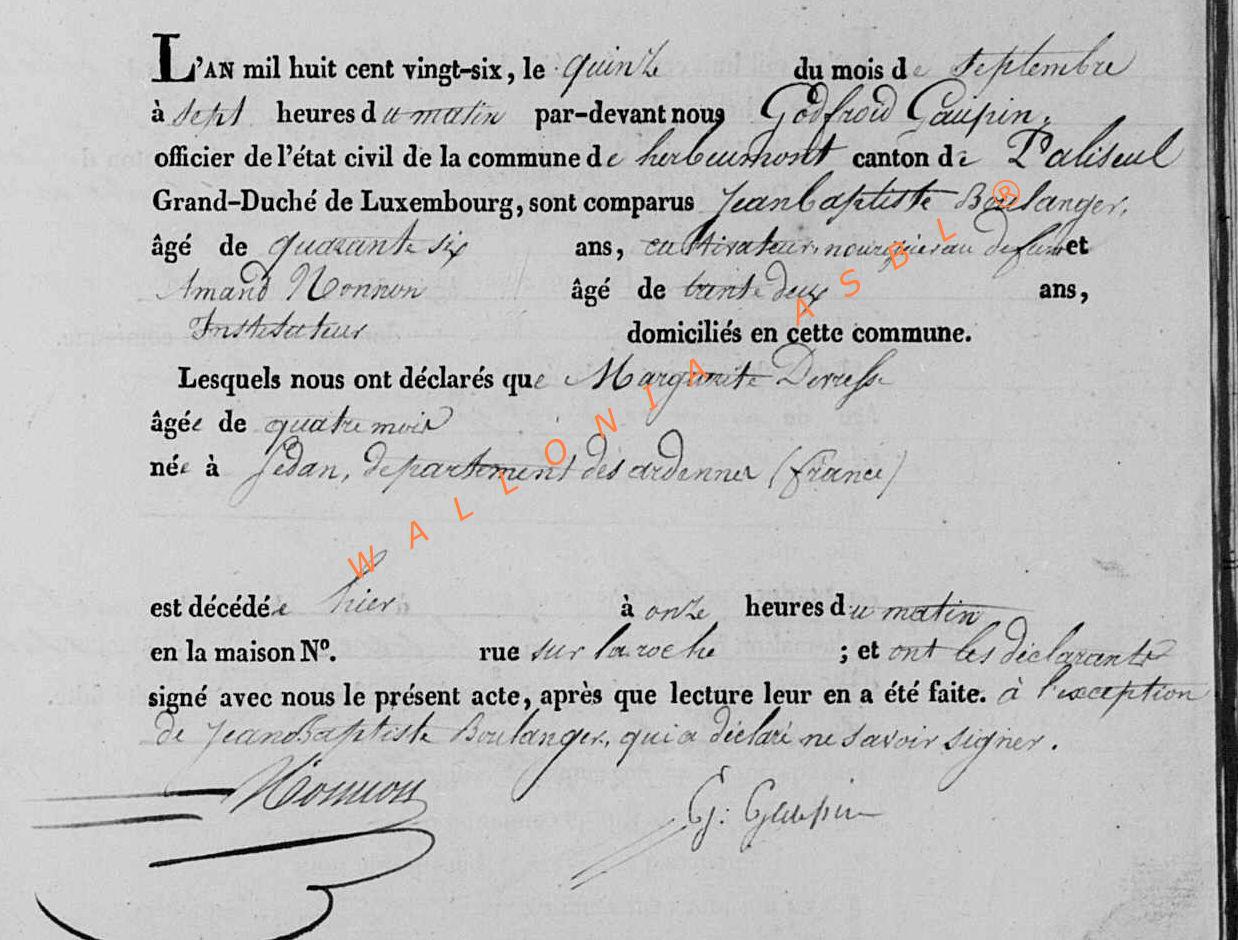 L'AN mil huit cent vingt-six, le quinze du mois de septembre
à sept heures du matin par-devant nous Godfroid Gaupin,
officier de l'état civil de la commune de herbeumont canton de Paliseul
Grand-Duché de Luxembourg, sont comparus Jean Baptiste Boulanger,
âgé de quarante six ans, cultivateur, nourricier au defunt et
Amand Nonnon âgé de trente deux ans,
Instituteur domiciliés en cette commune.
Lesquels nous ont déclarés que Marguerite
âgée de quatre mois
née à Sédan, departement des ardennes (france)
est décédée hier à onze heures du matin
en la maison N°. rue sur la roche ; et ont les déclarants
signé avec nous le présent acte, après que lecture leur en a été faite. à l'exception
de Jean Baptiste Boulanger, qui a déclaré ne savoir signer.
Nonnon G: Gaupin
WALLONIA ASBL ®